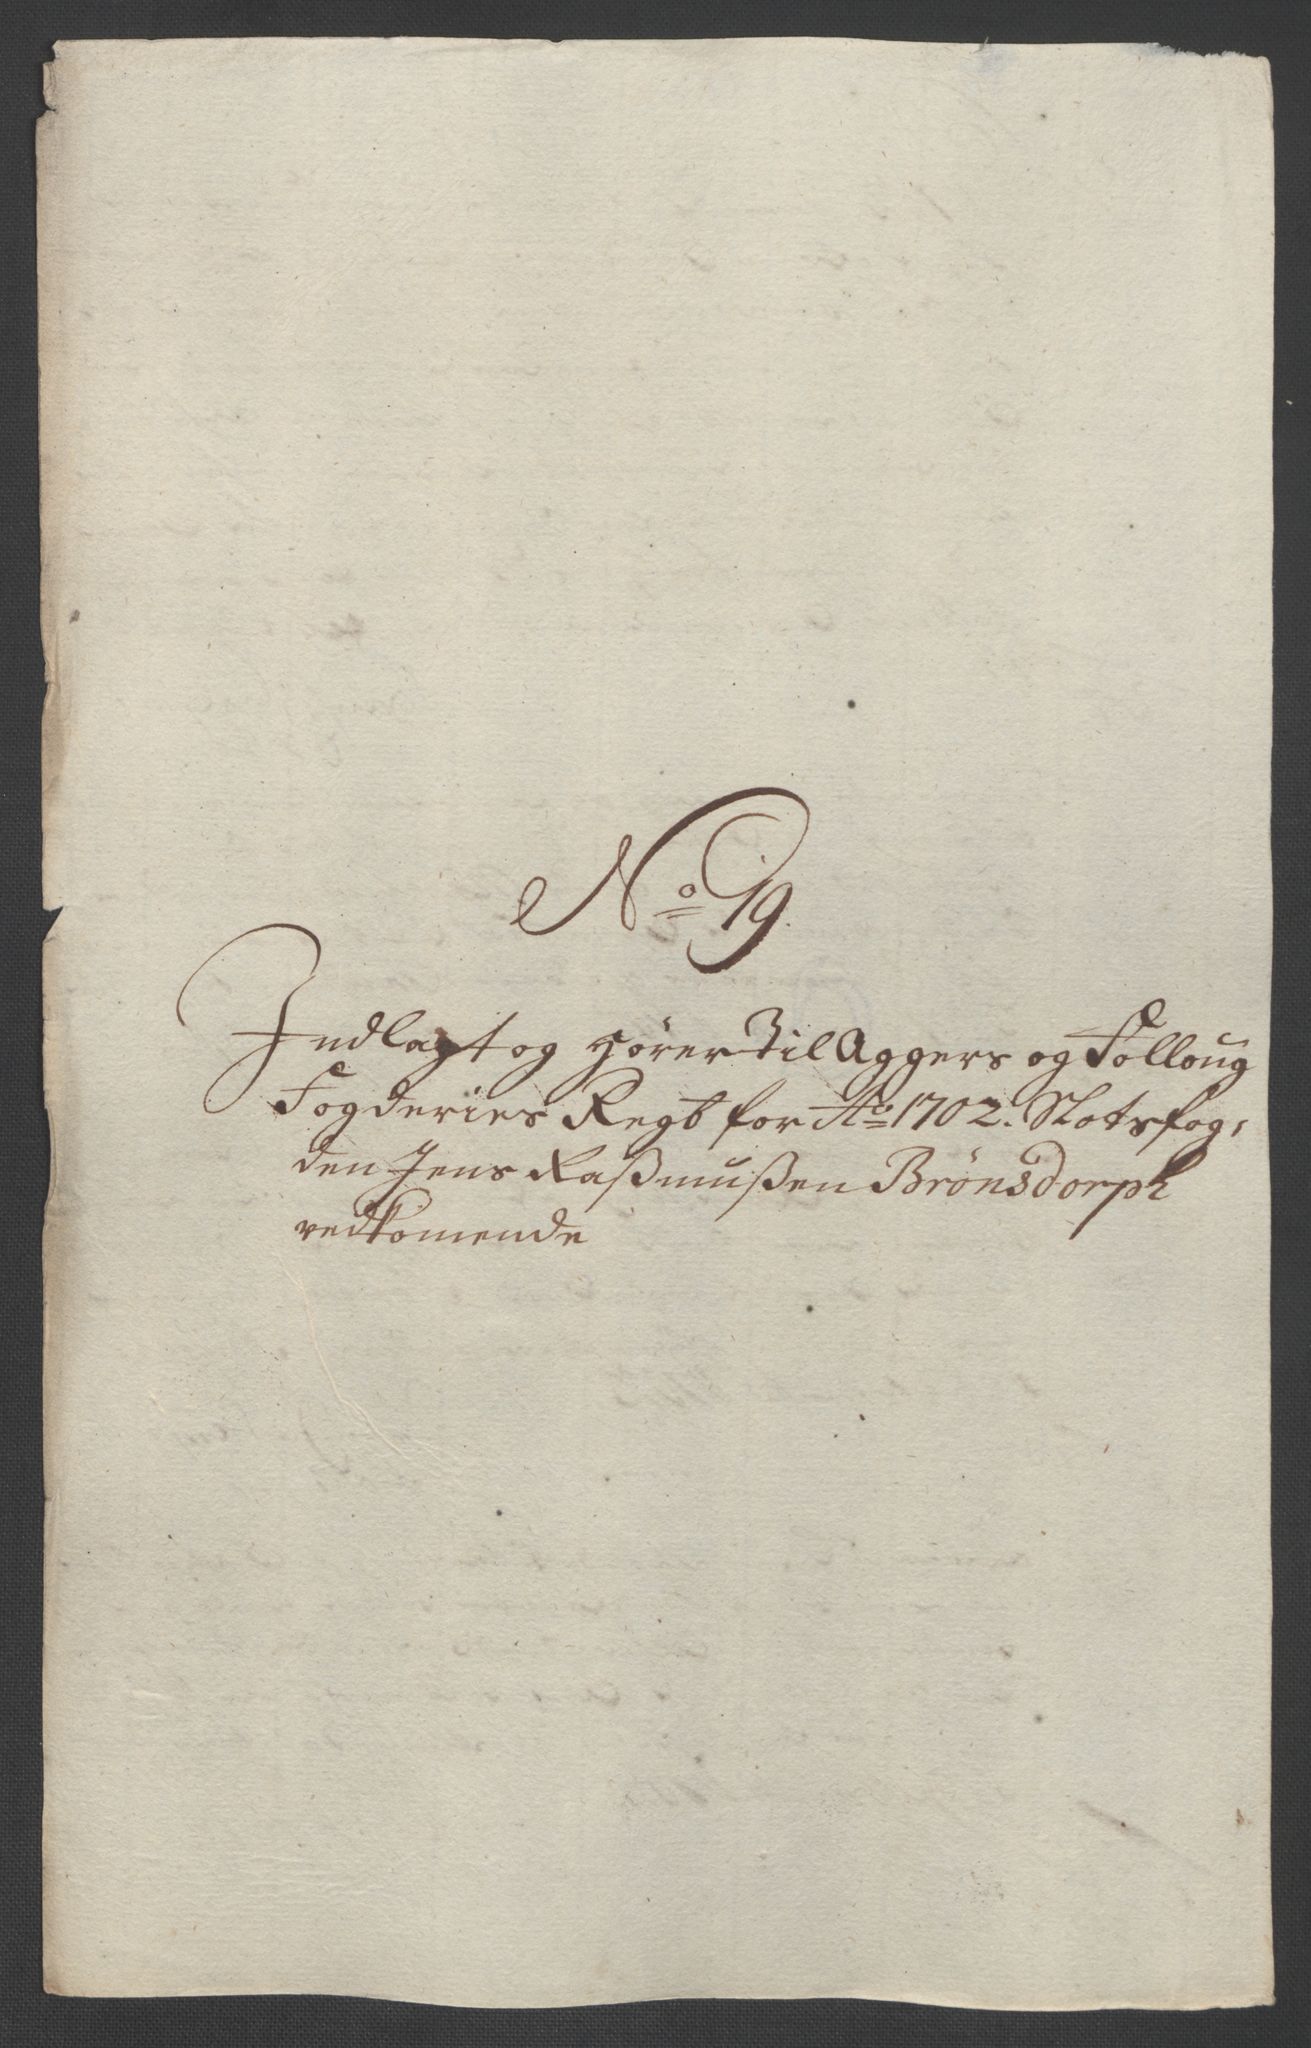 No 19.
Indlagt og hører til Aggers og Folloug
Fogderies Regb for Ao 1702. Slotsfog,
den Jens Raßmußen Brönsdorph
vedkomende